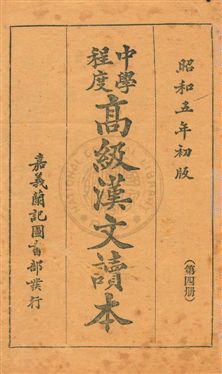 昭和五年初版
(第四册)
中學
程度
高級漢文讀本
嘉義蘭記圖書部發行